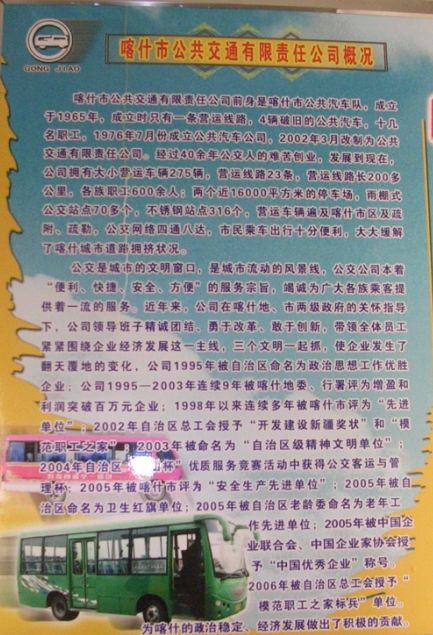 GONG JIAO
喀什市公共交通有限责任公司概况
喀什市公共交通有限责任公司前身是喀什市公共汽车队，成立
于1965年，成立时只有一条营运线路，4辆破旧的公共汽车，十几
名职工，1976年7月份成立公共汽车公司，2002年3月改制为公共
交通有限责任公司。经过40余年公交人的艰苦创业，发展到现在，
公司拥有大小营运车辆275辆，营运线路23条，营运线路长200多
公里，各族职工600余人；两个近16000平方米的停车场，雨棚式
公交站点70多个，不锈钢站点316个，营运车辆遍及喀什市区及疏
附、疏勒，公交网络四通八达，市民乘车出行十分便利，大大缓解
了喀什城市道路拥挤状况。
公交是城市的文明窗口，是城市流动的风景线，公交公司本着
“便利、快捷、安全、方便”的服务宗旨，竭诚为广大各族乘客提
供着一流的服务。近年来，公司在喀什地、市两级政府的关怀指导
下，公司领导班子精诚团结、勇于改革、敢于创新，带领全体员工
紧紧围绕企业经济发展这一主线，三个文明一起抓，使企业发生了
翻天覆地的变化，公司1995年被自治区命名为政治思想工作优胜
企业；公司1995—2003年连续9年被喀什地委、行署评为增盈和
利润突破百万元企业；1998年以来连续多年被喀什市评为“先进
单位”；2002年自治区总工会授予“开发建设新疆奖状”和“模
范职工之家”；2003年被命名为“自治区级精神文明单位”；
2004年自治区“ 山杯”优质服务竞赛活动中获得公交客运与管
理杯；2005年被喀什市评为“安全生产先进单位”；2005年被自
治区命名为卫生红旗单位；2005年被自治区老龄委命名为老年工
作先进单位；2005年被中国企
业联合会、中国企业家协会授
予“中国优秀企业”称号。
2006年被自治区总工会授予“
模范职工之家标兵”单位。
为喀什的政治稳定、经济发展做出了积极的贡献。